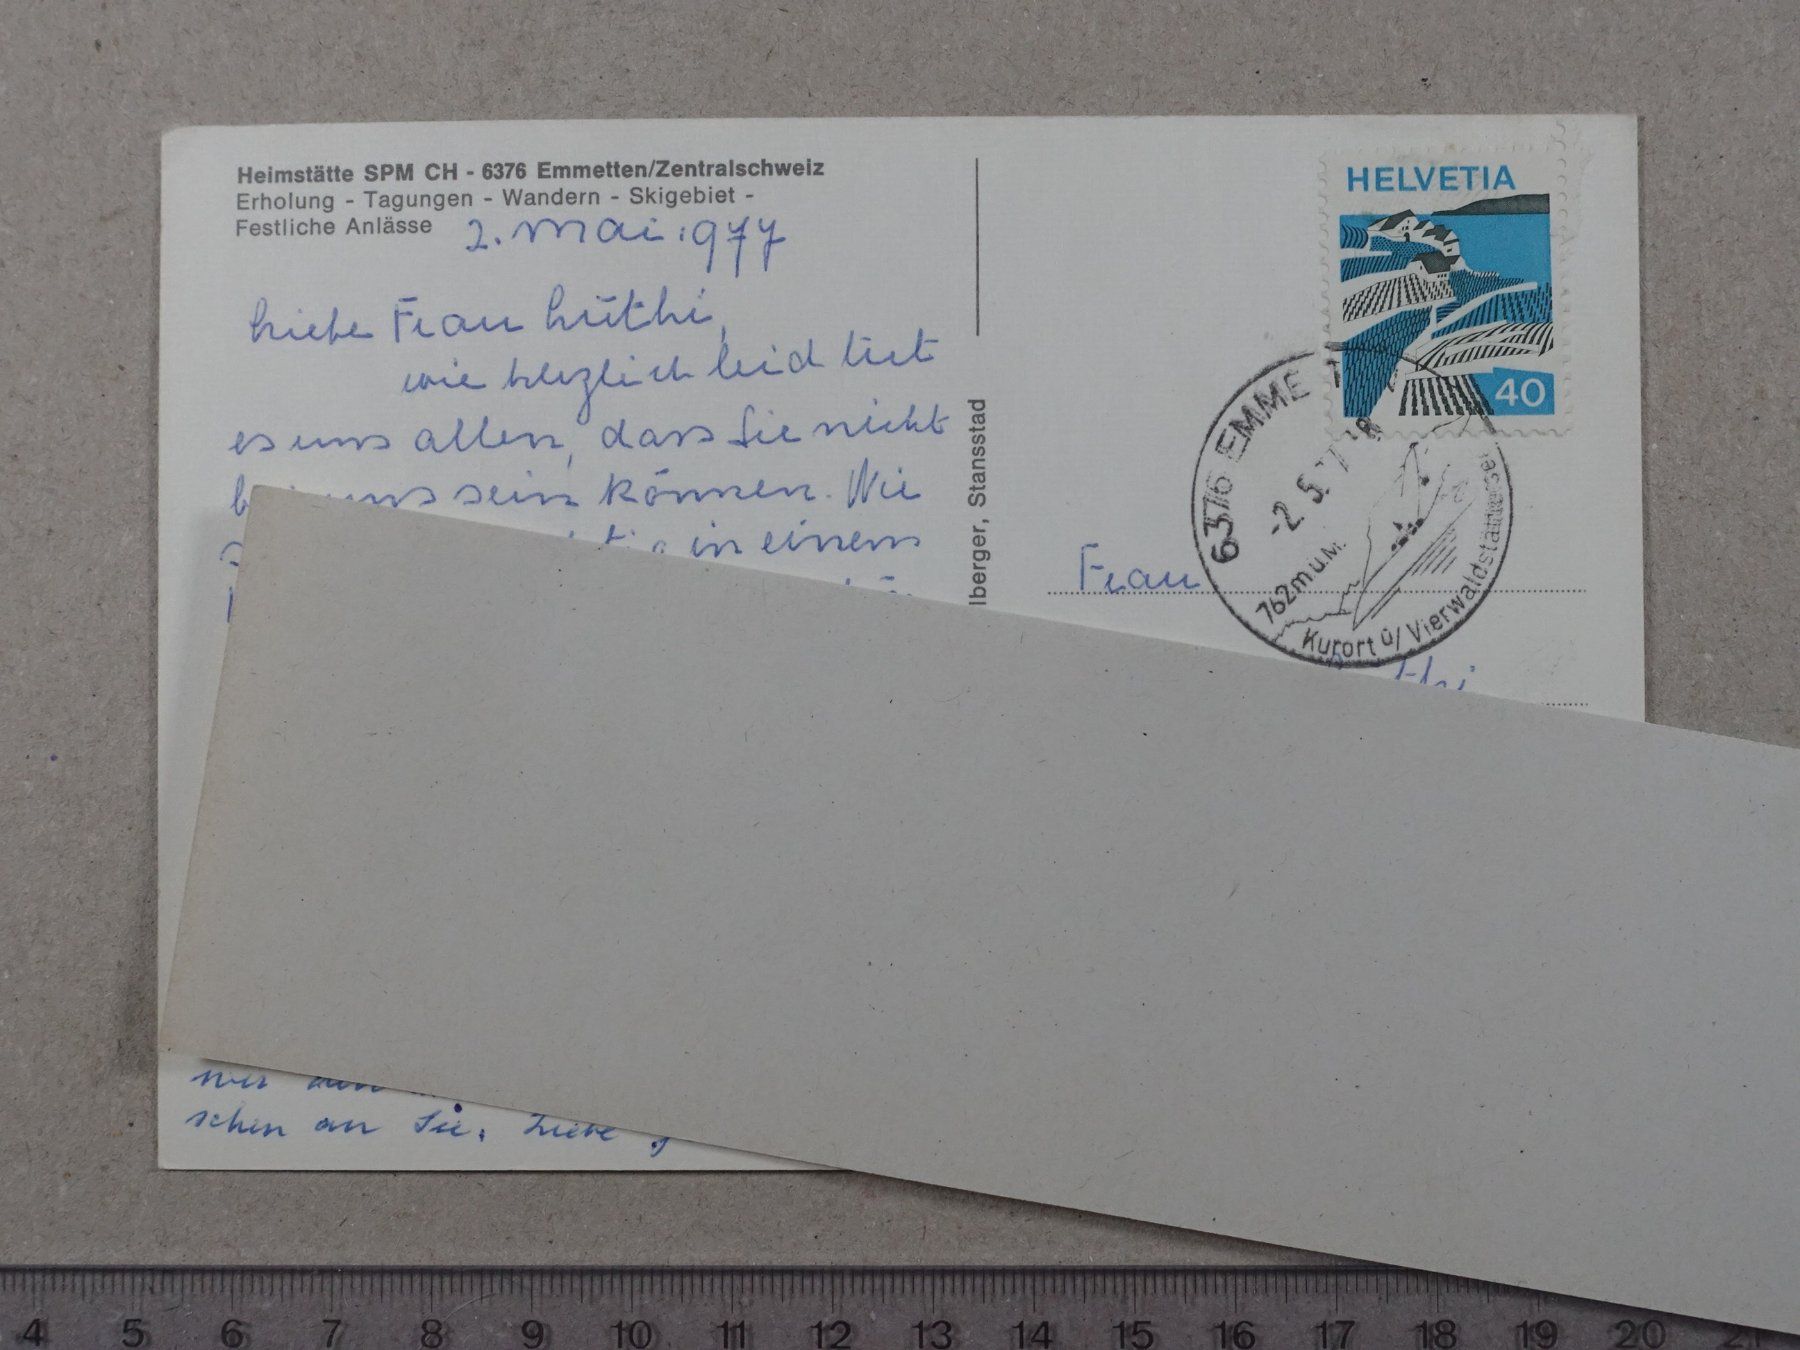 Heimstätte SPM CH - 6376 Emmetten/Zentralschweiz
Erholung - Tagungen - Wandern - Skigebiet -
Festliche Anlässe
2. Mai 1977
Liebe Frau Lüthi,
wie herzlich leid tut
es uns allen, dass Sie nicht
uns sein können. Wie
in einem
schen an Sie. Liebe
lberger, Stansstad
HELVETIA
40
6376 EMME
-2.5.77
762m ü.M.
Kurort ü/Vierwaldstättersee
Frau
4 5 6 7 8 9 10 11 12 13 14 15 16 17 18 19 20 21